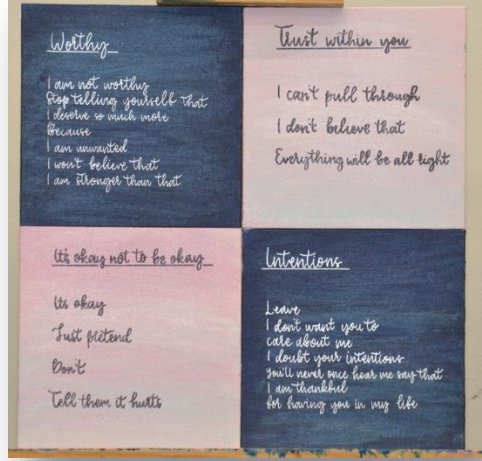 Worthy
I am not worthy
Stop telling yourself that
I deserve so much more
Because
I am unwanted
I won't believe that
I am stronger than that
Trust within you
I can't pull through
I don't believe that
Everything will be all right
It's okay not to be okay
Its okay
Just pretend
Don't
Tell them it hurts
Intentions
Leave
I don't want you to
care about me
I doubt your intentions
You'll never once hear me say that
I am thankful
for having you in my life